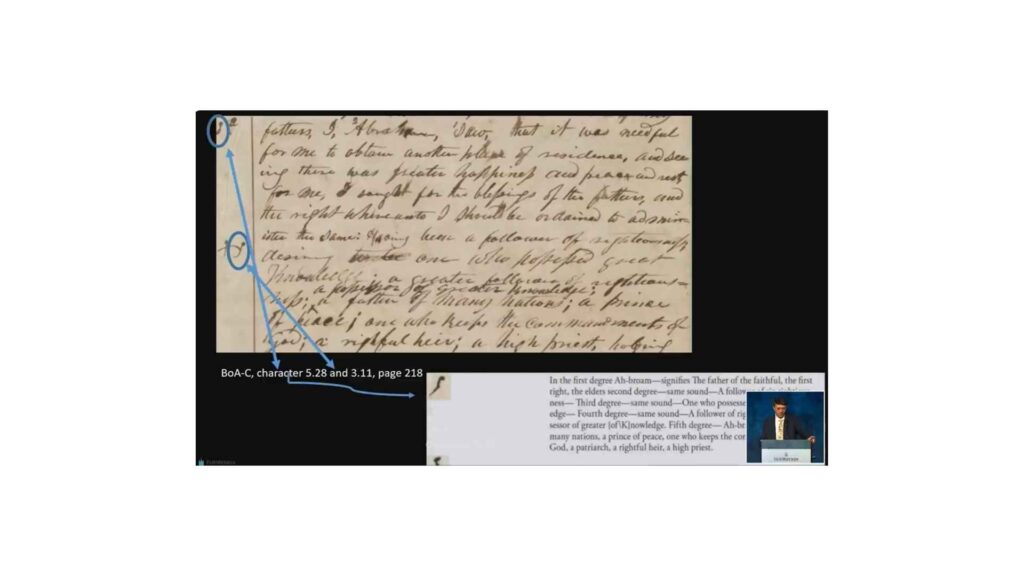 fathers, I, Abraham, saw, that it was needful
for me to obtain another place of residence, and see
ing there was greater happiness and peace and rest
for me, I sought for the blessings of the fathers, and
the right whereunto I should be ordained to admin
ister the same: Having been a follower of righteousness
desiring to be one who possessed great
Knowledge; a greater follower of righteous=
a possessor of greater knowledge;
ness; a father of many nations; a prince
of peace; one who keeps the commandments of
God; a rightful heir; a high priest, holding
BoA-C, character 5.28 and 3.11, page 218
In the first degree Ah-broam—signifies The father of the faithful, the first
right, the elders second degree—same sound—A follower
ness— Third degree—same sound—One who possesse
edge— Fourth degree—same sound—A follower of rig
sessor of greater [of\K]nowledge. Fifth degree— Ah-br
many nations, a prince of peace, one who keeps the co
God, a patriarch, a rightful heir, a high priest.